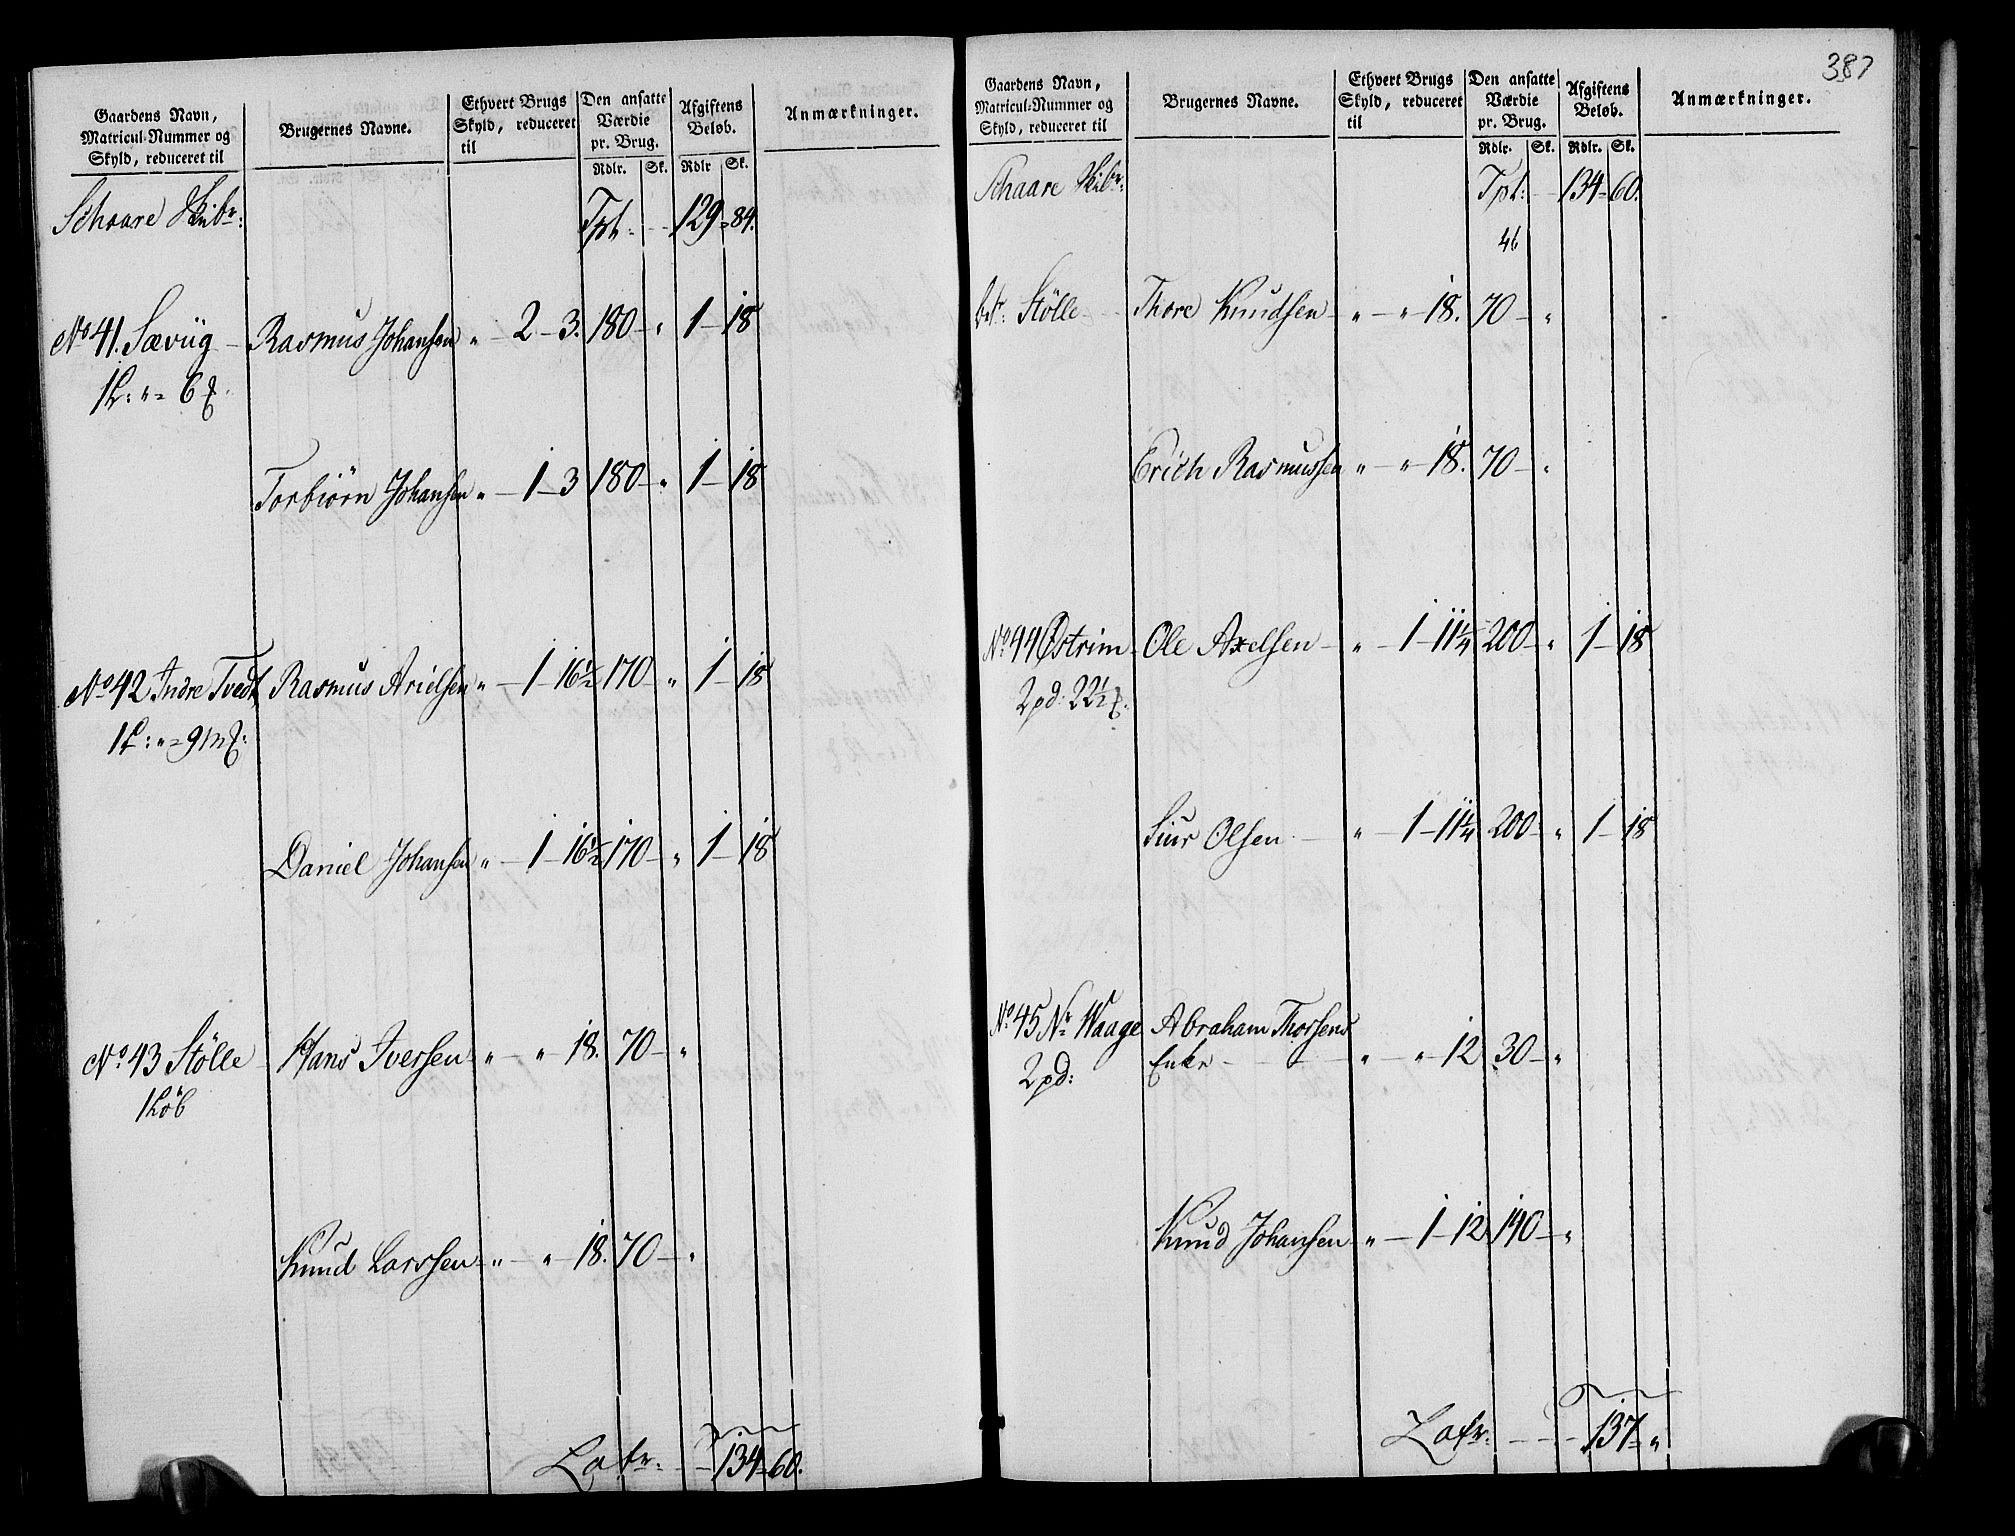 Gaardens Navn, Matricul-Nummer og Skyld, reduceret til
Brugernes Navne.
Ethvert Brugs Skyld, reduceret til
Den ansatte Værdie pr. Brug.
Afgiftens Beløb.
Anmærkninger.
Rdlr. Sk. Rdlr Sk.
Schaare Skibr: Tpt: 129 = 84.
No 41. Sæviig Rasmus Johansen " 2 - 3. 180 - " 1 - 18
1L: " = 6
Torbiörn Johansen " - 1 - 3 180 - " 1 - 18
No 42 Indre Tvedt Rasmus Arielsen " - 1 - 16½ 170 - " 1 - 18
1L: " = 9
Daniel Johansen " - 1 - 16½ 170 - " 1 - 18
No 43 Stölle Hans Iversen " - " 18. 70 - "
1 Løb
Knud Larssen " - " - 18. 70 - "
Latr: 134 = 60.
387
Gaardens Navn, Matricul-Nummer og Skyld, reduceret til
Brugernes Navne.
Ethvert Brugs Skyld, reduceret til
Den ansatte Værdie pr. Brug.
Afgiftens Beløb.
Anmærkninger.
Rdlr. Sk. Rdlr. Sk.
Schaare Skibr: Tpt: 134 = 60.
46
Stölle Thore Knudsen " - " - 18. 70 - "
Erich Rasmussen " - " - 18. 70 - "
No 44 Østrim Ole Axelsen " - 1 - 11¼ 200 - " 1 - 18
2 pd: 22½
Siur Olsen " - 1 - 11¼ 200 - " 1 - 18
No 45 Nr Waage Abraham Thorsens
2 pd: Enke " - " - 12 30 - "
Knud Johansen " - 1 - 12 140 - "
Latr: 137 = "